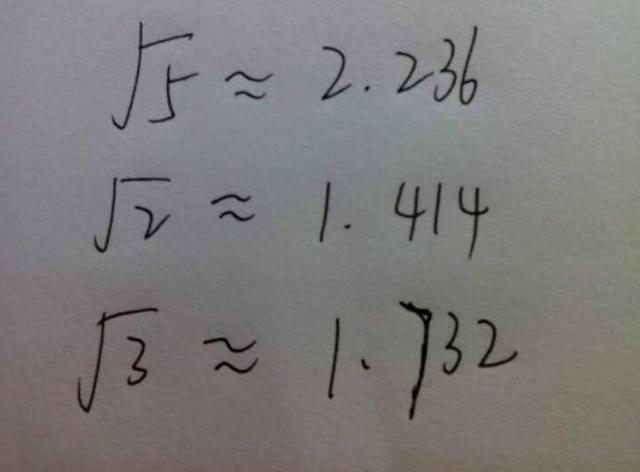 √5 ≈ 2.236
√2 ≈ 1.414
√3 ≈ 1.732